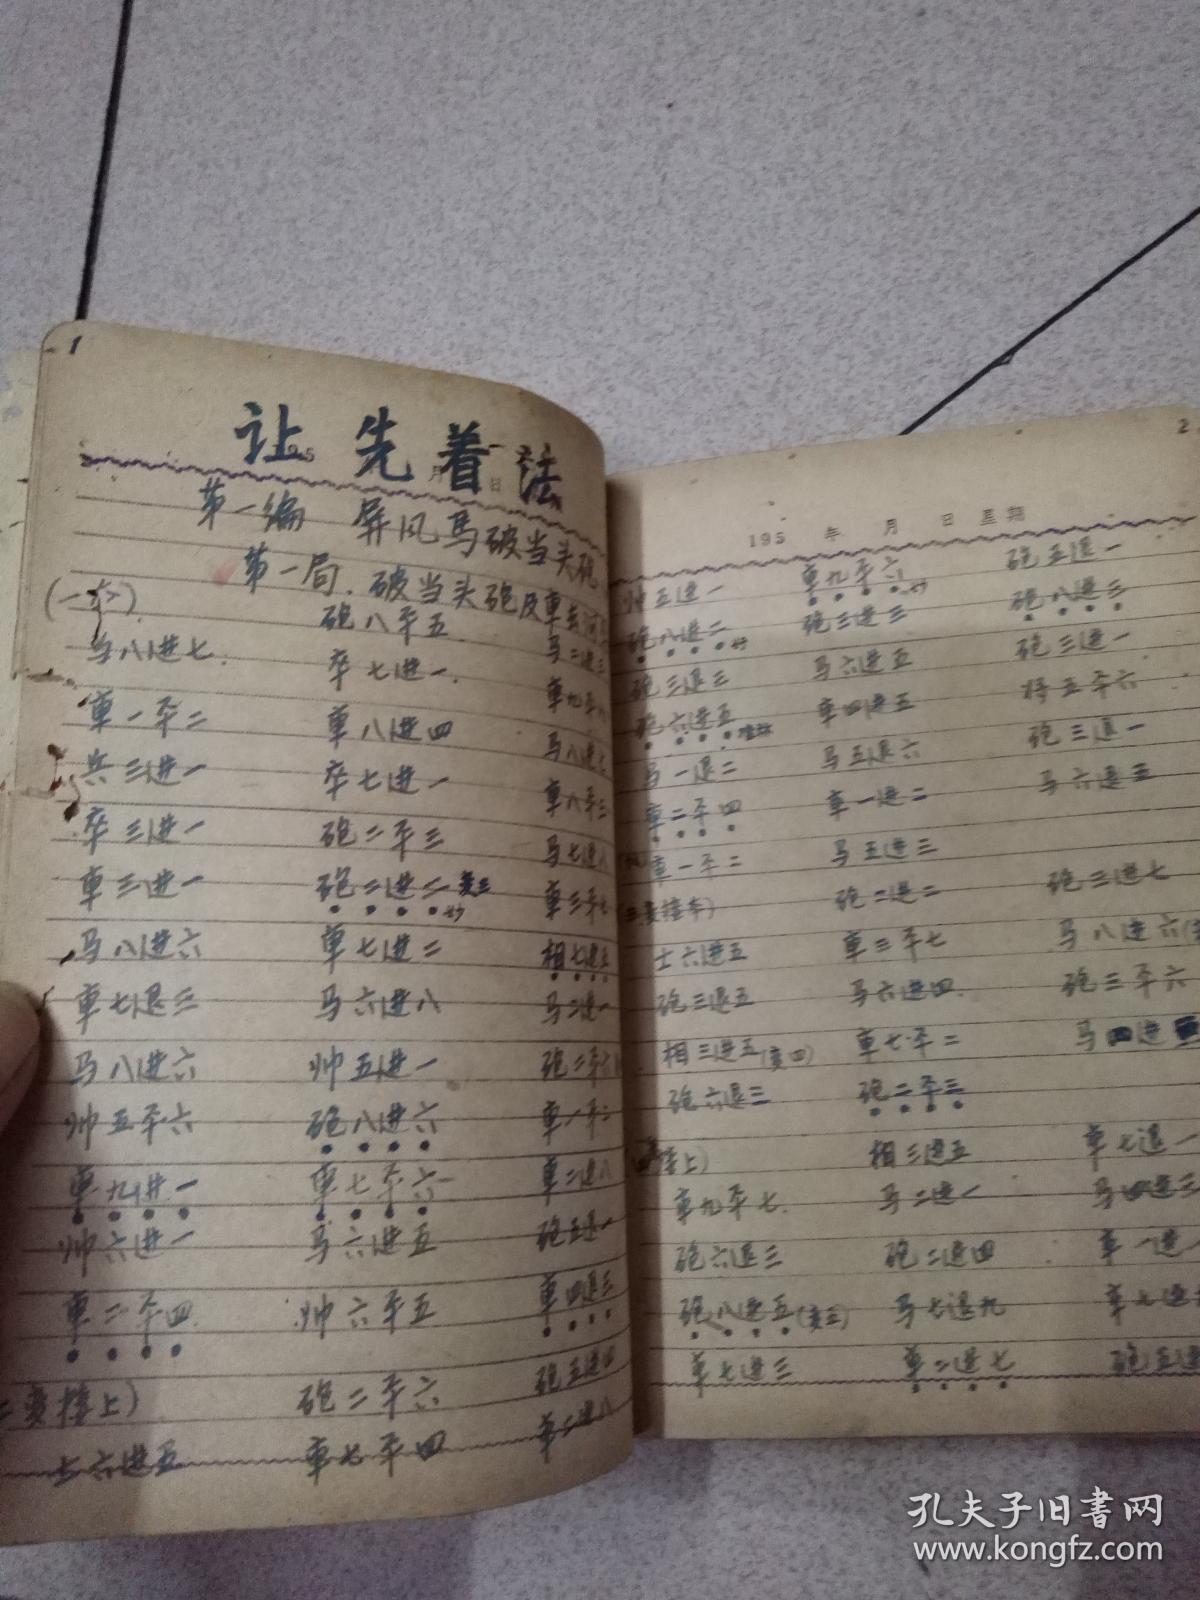 1
让先着法
195 月 日
第一编 屏风馬破当头砲
第一局.破当头砲及車去河
(一本) 砲八平五 马二进三
马八进七. 卒七进一. 車九平八
車一平二 車八进四 马八进七
兵三进一 卒七进一 車八平三
卒三进一 砲二平三 马七进八
車三进一 砲二进二 变三 妙 車三平七
马八进六 車七进二 相七进五
車七退三 马六进八 马二进一
马八进六 帅五进一 砲二平六
帅五平六 砲八进六 車一平二
車九进一 車七平六 車二进八
帅六进一 马六进五 砲五退一
車二平四 帅六平五 車四退三
二变接上) 砲二平六 砲五进四
士六进五 車七平四 車二进八
2
195 年 月 日 星期
帅五进一 車九平六 妙 砲五退一
砲八进二 妙 砲三进三 砲八进三
砲三退三 马六进五 砲三进一
砲六进五 車四进五 将五平六
马一退二 马五退六 砲三退一
車二平四 車一进二 马六进五
車一平二 马五进三
三变接本) 砲二进二 砲三进七
士六进五 車三平七 马八进六
砲三退五 马六进四. 砲三平六
相三进五(变四) 車七平二
砲六退三 砲二平三
接上) 相三进五 車七退一
車九平七. 马二进一
砲六退三 砲二进四 車一进
砲八进五(变三) 马七退九 車七进
車七进三 車二进七 砲五进
孔夫子旧书网
www.kongfz.com